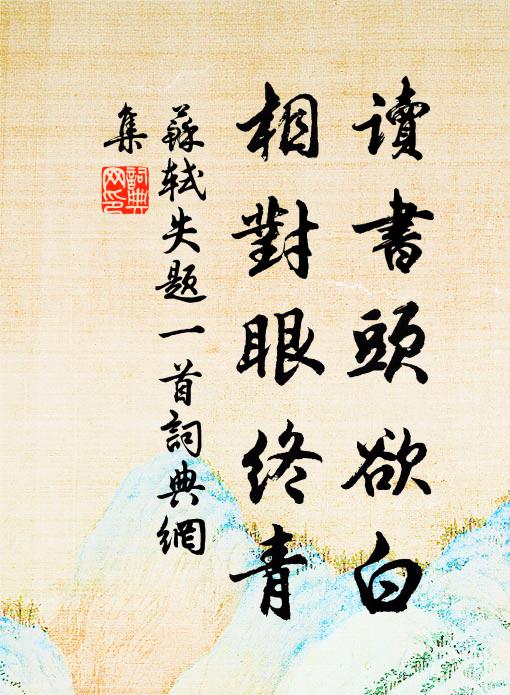 讀書頭欲白
相對眼終青
蘇軾失題一首詞典網
集
詞典網印